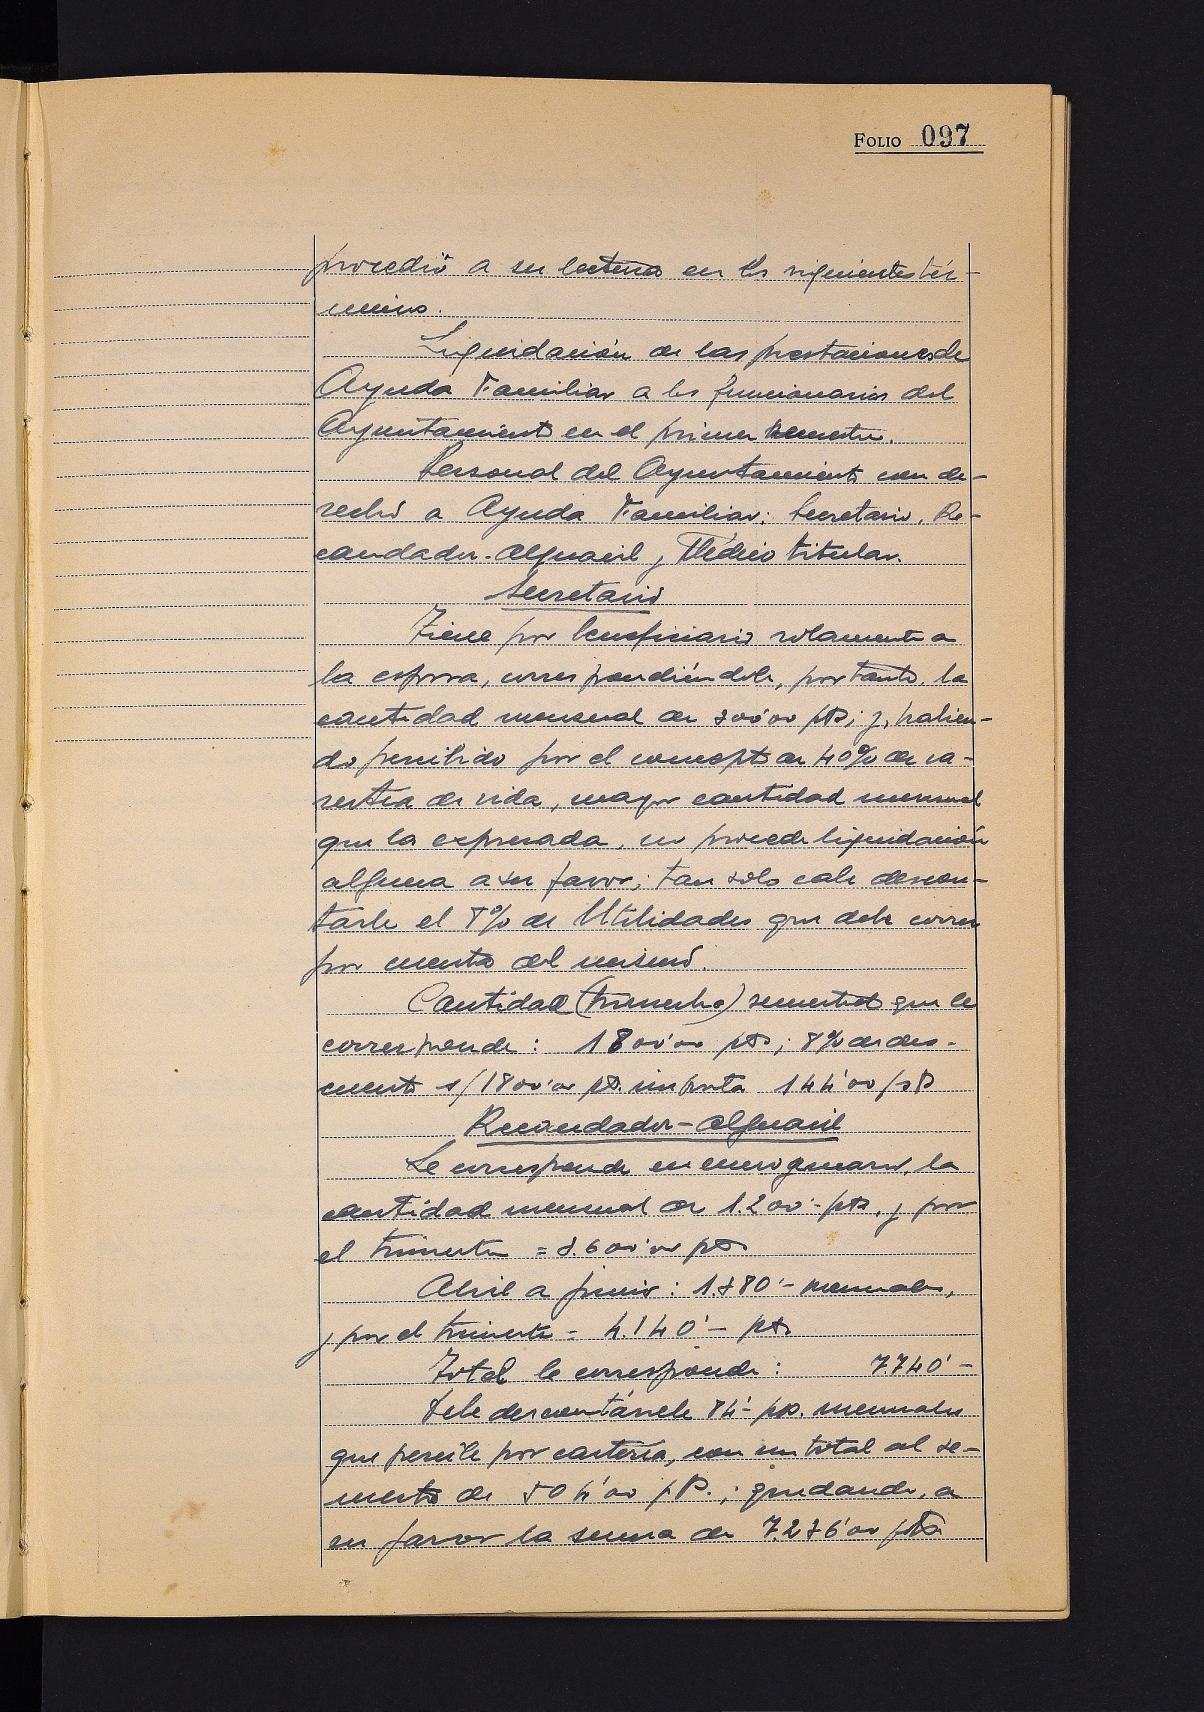 FOLIO 097
procedió a su lectura en los siguientes tér-
minos.
Liquidación de las prestaciones de
Ayuda Familiar a los funcionarios del
Ayuntamiento en el primer semestre.
Personal del Ayuntamiento con de-
recho a Ayuda Familiar: Secretario, Re-
caudador-alguacil y Médico titular.
Secretario
Tiene por beneficiario solamente a
la esposa, correspondiéndole, por tanto, la
cantidad mensual de 300'00 pts; y, habien-
do percibido por el concepto de 40% de ca-
restía de vida, mayor cantidad mensual
que la expresada, no procede liquidación
alguna a su favor; tan solo cabe descon-
tarle el 8% de Utilidades que debe correr
por cuenta del mismo.
Cantidad (trimestre) semestral que le
corresponde: 1800'00 pts; 8% de des-
cuento s/1800'00 pts. importa 144'00 pts
Recaudador-alguacil
Le corresponde en enero a marzo, la
cantidad mensual de 1.200'- pts, y por
el trimestre = 3.600'00 pts
Abril a junio: 1380'- mensuales,
y por el trimestre = 4.140'- pts
Total le corresponde: 7.740'-
Debe descontársele 84'- pts. mensuales
que percibe por cartería, con un total al se-
mestre de 504'00 pts.; quedando, a
su favor la suma de 7.236'00 pts